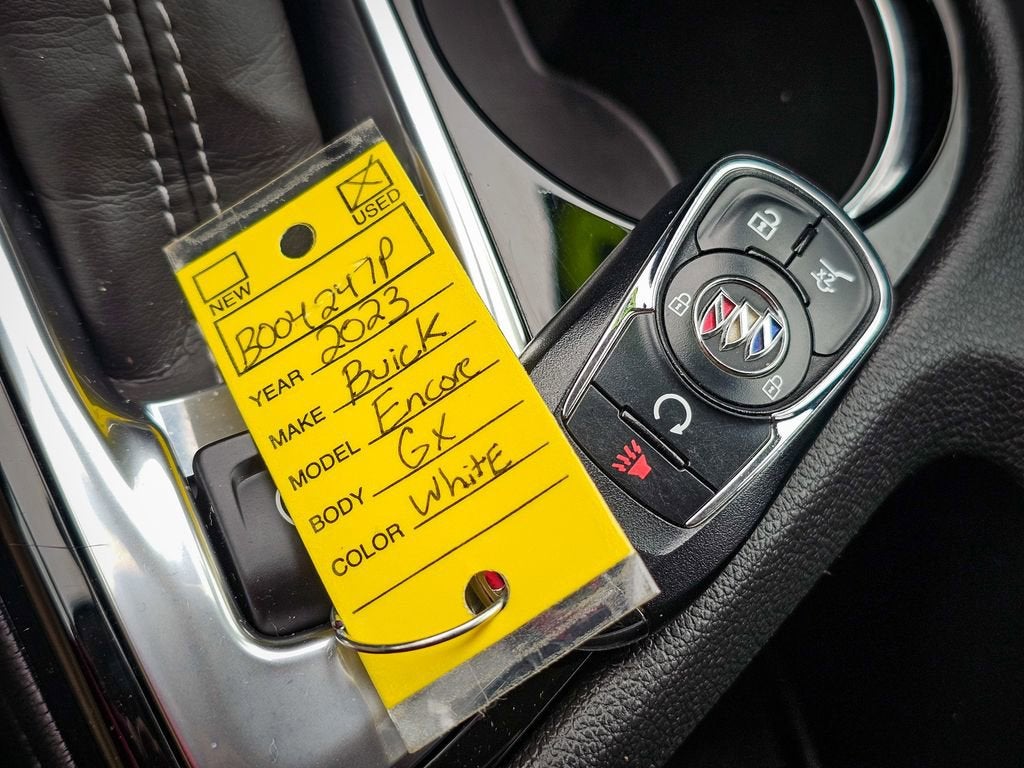 USED
NEW
B004247P
YEAR 2023
MAKE Buick
MODEL Encore
BODY GX
COLOR White
x2